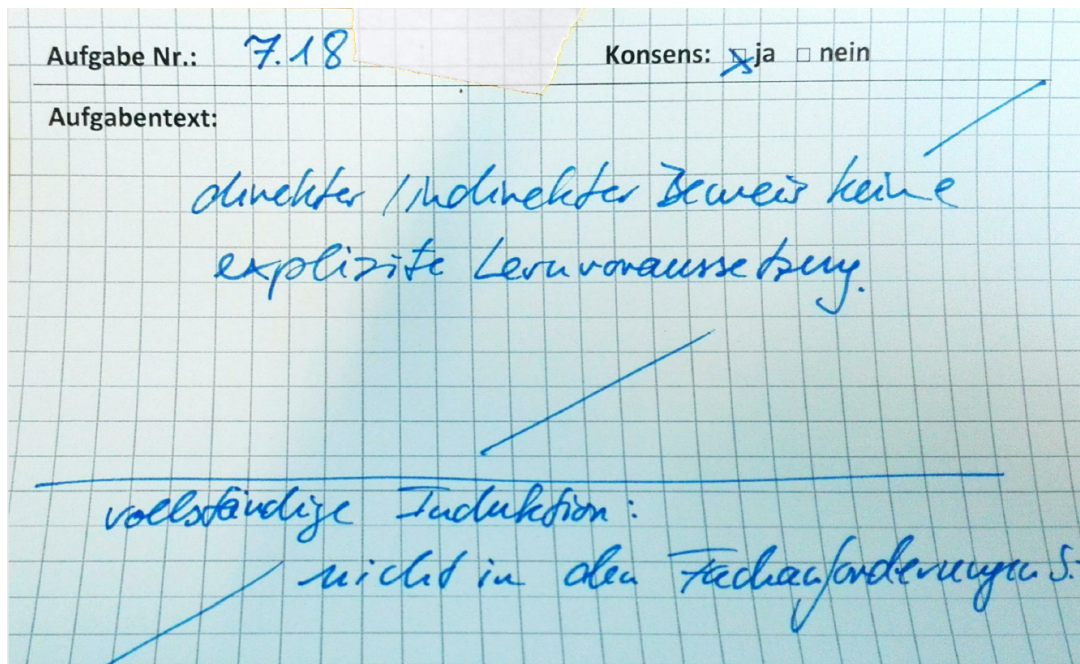 Aufgabe Nr.: 7.18 Konsens: ja nein
Aufgabentext:
direkter / indirekter Beweis keine
explizite Lernvoraussetzung.
vollständige Induktion:
nicht in den Fachanforderungen S.